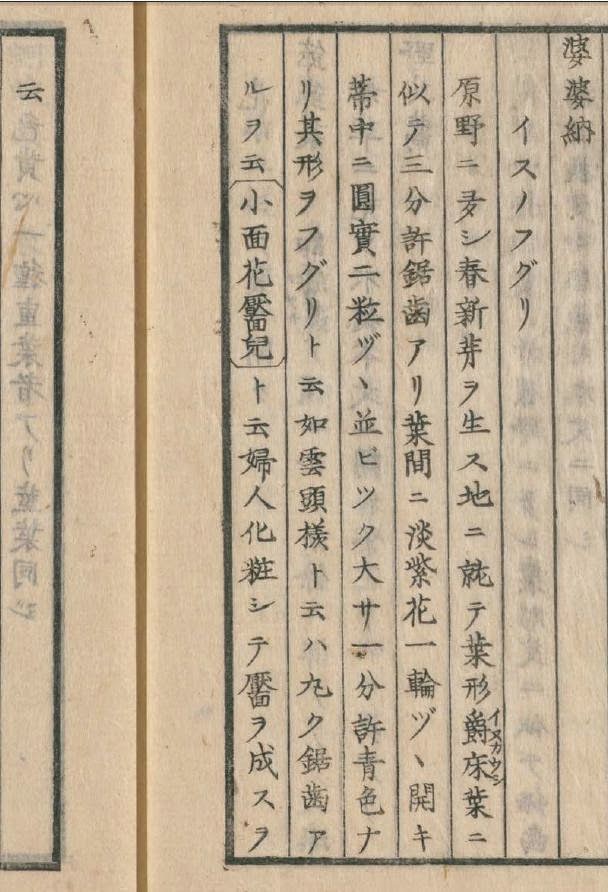 婆婆納
イヌノフグリ
原野ニ多シ春新芽ヲ生ス地ニ就テ葉形爵床葉ニ
イヌカウジ
似テ三分許鋸歯アリ葉間ニ淡紫花一輪ヅヽ開キ
蒂中ニ圓實二粒ヅヽ並ビツク大サ一分許青色ナ
リ其形ヲフグリト云如雲頭様ト云ハ丸ク鋸歯ア
ルヲ云小面花靨兒ト云婦人化粧シテ靨ヲ成スヲ
云色貴心一種重葉者アリ莖葉同シ